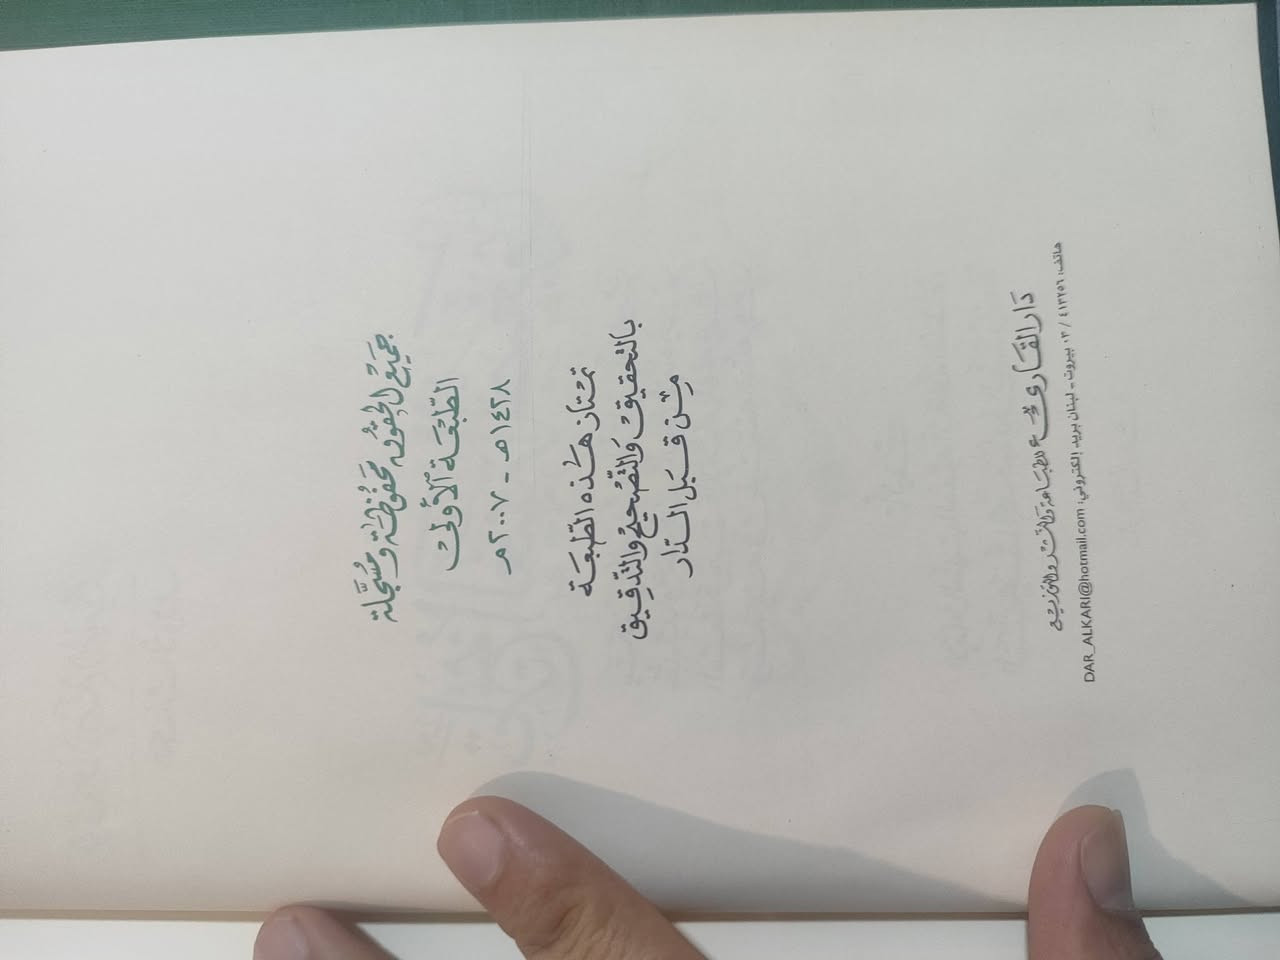 جَمَيْع الحُقوُق مَحفوُظَة وَمُسَجَّلة
الطّبْعَة الأولى
١٤٢٨هـ - ٢٠٠٧م
تمتاز هَذه الطّبعَة
بالتحقيق وَالتّصْحيح وَالتّدقيق
مِن قبَل الدّار
دَار القَارئ
للطبَاعة وَالنشر وَالتوزيع
هاتف: ٤١٣٢٥٦ / ٠٣ بيروت - لبنان بريد إلكتروني: DAR_ALKARI@hotmail.com